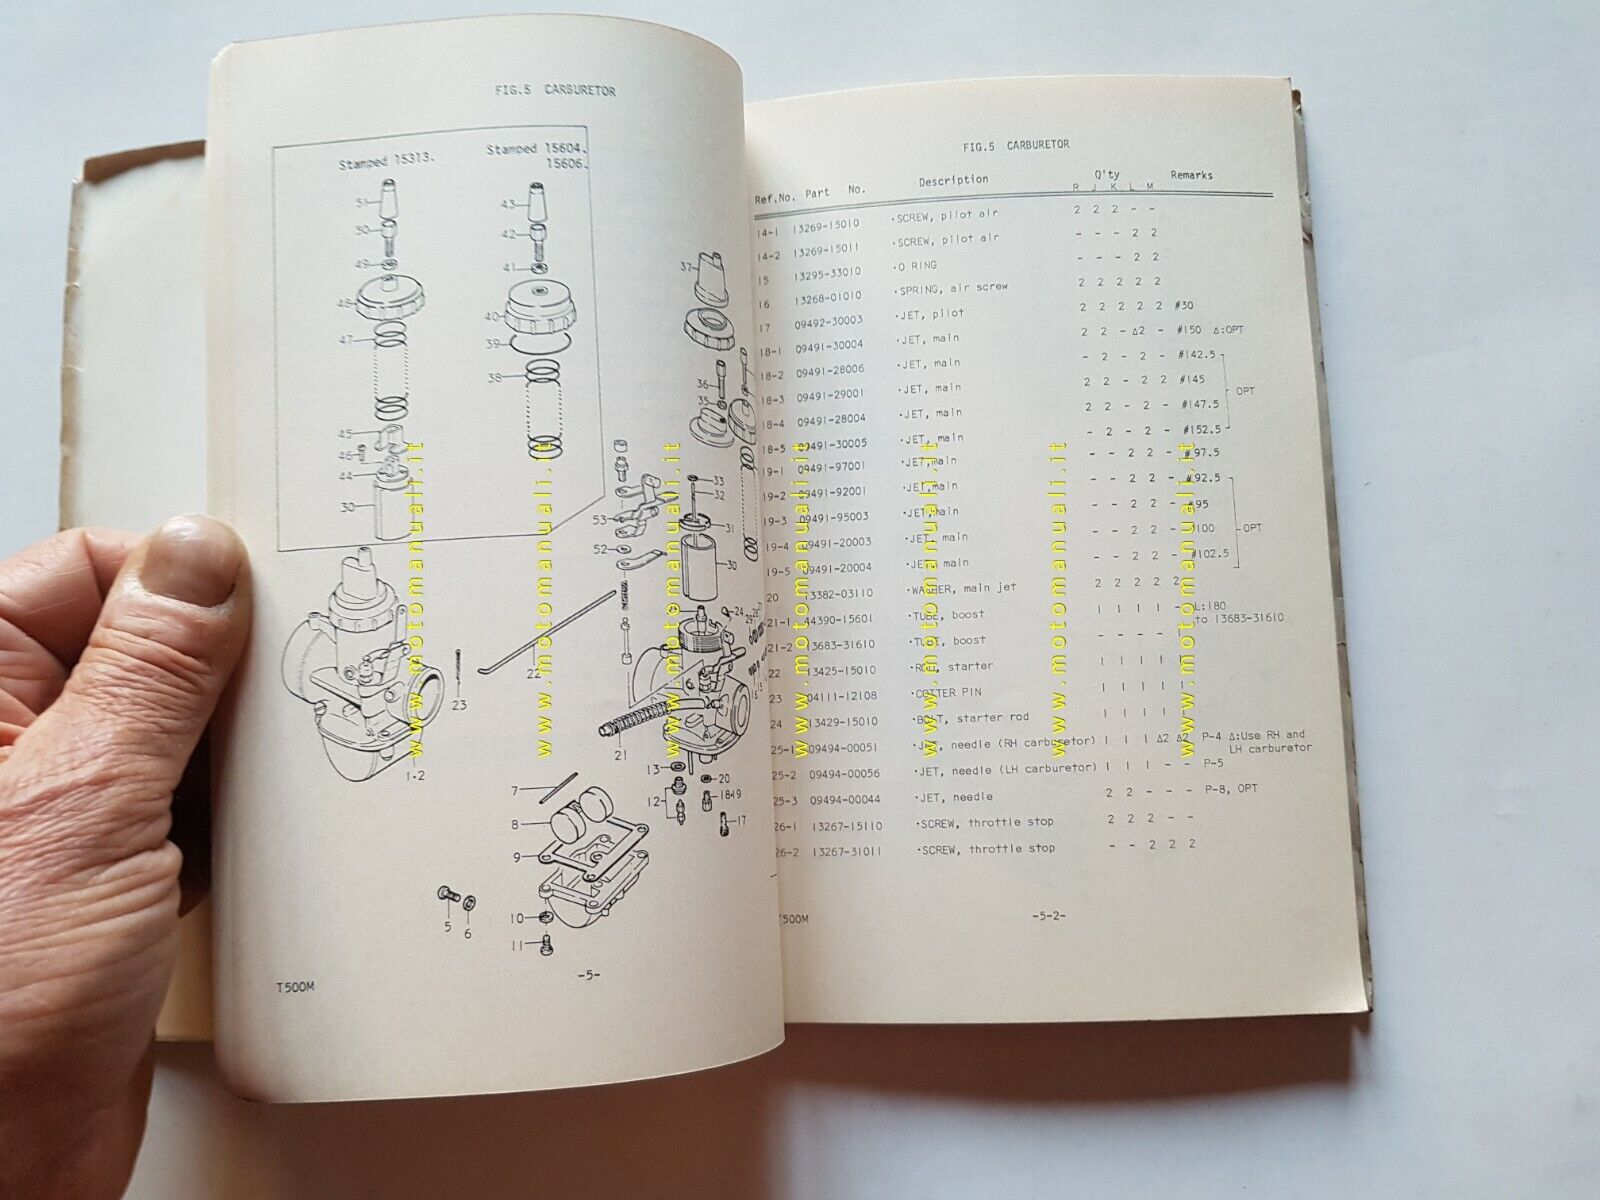 FIG.5 CARBURETOR
Stamped 15313.
Stamped 15604.
15606.
51
50
49
48
47
45
46
44
30
43
42
41
40
39
38
37
36
35
33
32
31
30
53
52
24
22
23
21
1·2
13
12
20
18·19
17
7
8
9
10
11
5
6
T500M
-5-
FIG.5 CARBURETOR
Ref.No. Part No. Description Q'ty Remarks
R J K L M
14-1 13269-15010 ·SCREW, pilot air 2 2 2 - -
14-2 13269-15011 ·SCREW, pilot air - - - 2 2
15 13295-33010 ·O RING - - - 2 2
16 13268-01010 ·SPRING, air screw 2 2 2 2 2
17 09492-30003 ·JET, pilot 2 2 2 2 2 #30
18-1 09491-30004 ·JET, main 2 2 - Δ2 - #150 Δ:OPT
18-2 09491-28006 ·JET, main - 2 - 2 - #142.5
18-3 09491-29001 ·JET, main 2 2 - 2 2 #145
18-4 09491-28004 ·JET, main 2 2 - 2 - #147.5
18-5 09491-30005 ·JET, main - 2 - 2 - #152.5
OPT
19-1 09491-97001 ·JET, main - - 2 2 - #97.5
19-2 09491-92001 ·JET, main - - 2 2 - #92.5
19-3 09491-95003 ·JET, main - - 2 2 - #95
19-4 09491-20003 ·JET, main - - 2 2 - #100
19-5 09491-20004 ·JET, main - - 2 2 - #102.5
OPT
20 13382-03110 ·WASHER, main jet 2 2 2 2 2
21-1 44390-15601 ·TUBE, boost 1 1 1 1 - L:180
to 13683-31610
21-2 13683-31610 ·TUBE, boost - - - - 1
22 13425-15010 ·ROD, starter 1 1 1 1 1
23 04111-12108 ·COTTER PIN 1 1 1 1 1
24 13429-15010 ·BOLT, starter rod 1 1 1 1 1
25-1 09494-00051 ·JET, needle (RH carburetor) 1 1 1 Δ2 Δ2 P-4 Δ:Use RH and
LH carburetor
25-2 09494-00056 ·JET, needle (LH carburetor) 1 1 1 - - P-5
25-3 09494-00044 ·JET, needle 2 2 - - - P-8, OPT
26-1 13267-15110 ·SCREW, throttle stop 2 2 2 - -
26-2 13267-31011 ·SCREW, throttle stop - - 2 2 2
T500M
-5-2-
www.motomanuali.it
www.motomanuali.it
www.motomanuali.it
www.motomanuali.it
www.motomanuali.it
www.motomanuali.it
www.motomanuali.it